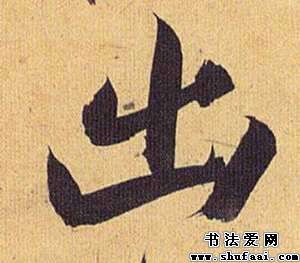 出
书法爱网
www.shufaai.com